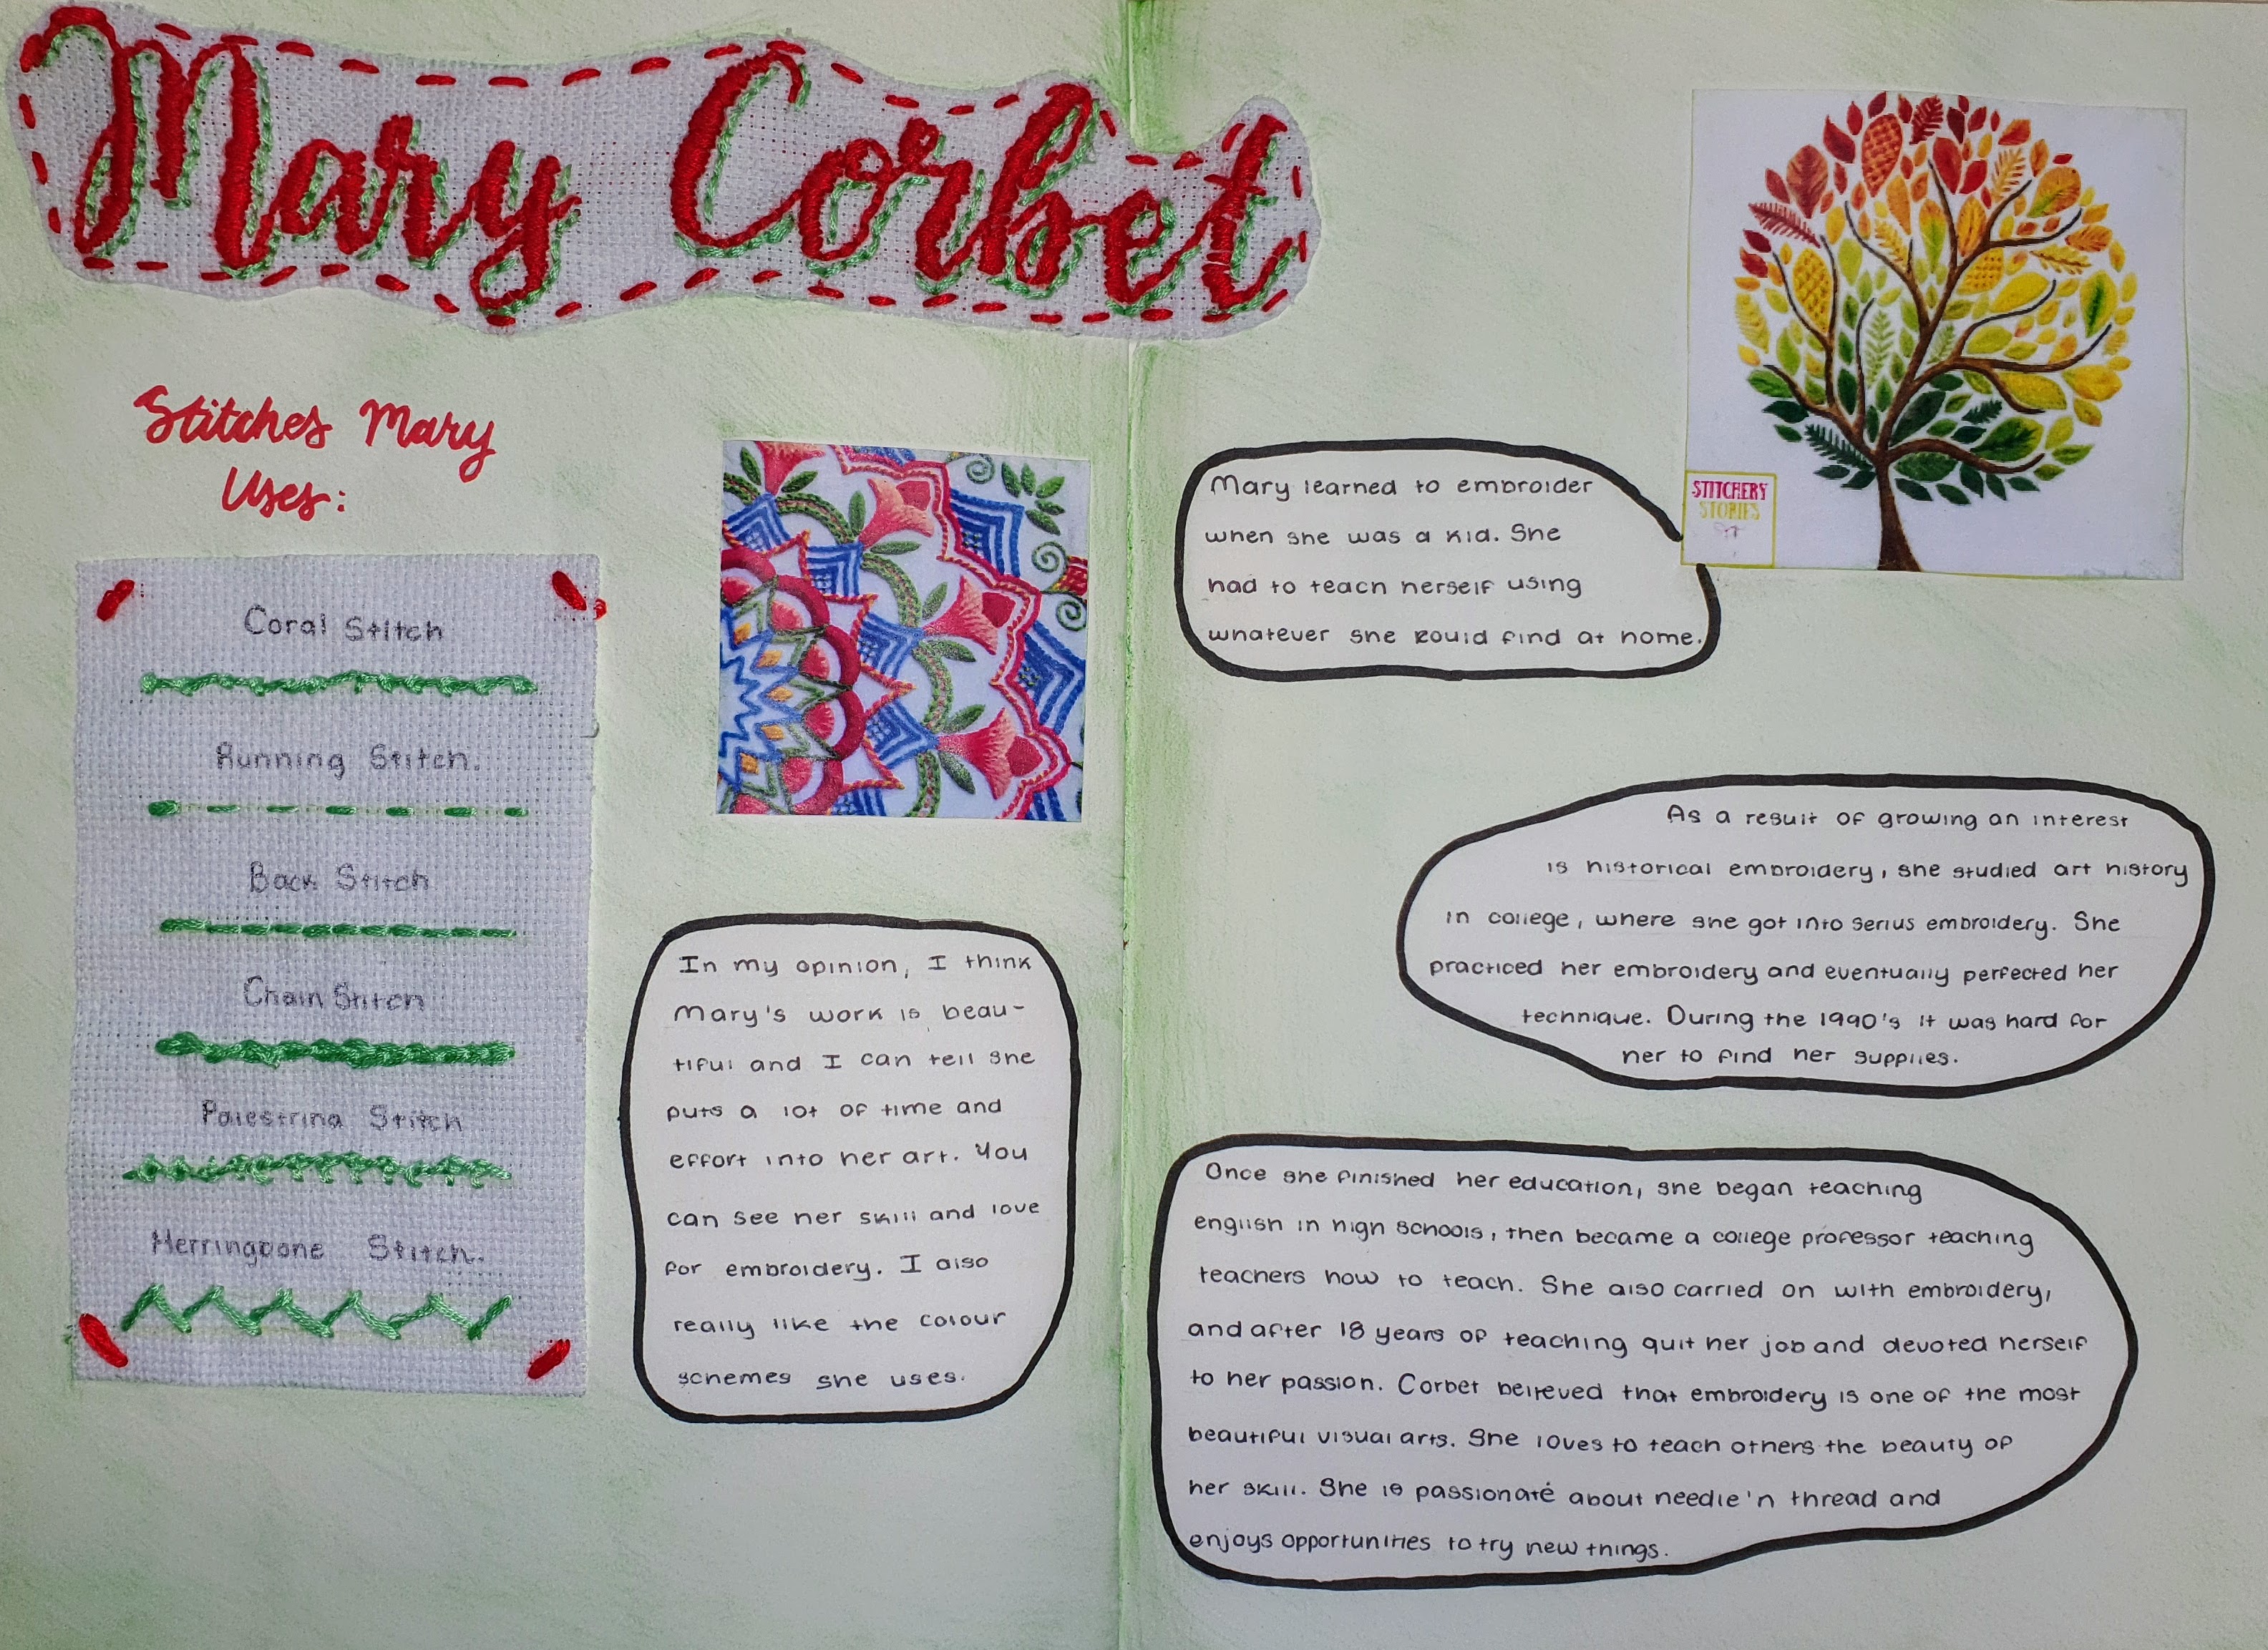 Mary Corbet
Stitches Mary
Uses:
Coral Stitch
Running Stitch.
Back Stitch
Chain Stitch
Palestrina Stitch
Herringbone Stitch.
In my opinion, I think
Mary's work is beau-
tiful and I can tell she
puts a lot of time and
effort into her art. You
can see her skill and love
for embroidery. I also
really like the colour
schemes she uses.
STITCHERY
STORIES
Mary learned to embroider
when she was a kid. She
had to teach herself using
whatever she could find at home.
As a result of growing an interest
is historical embroidery, she studied art history
in college, where she got into serius embroidery. She
practiced her embroidery and eventually perfected her
technique. During the 1990's it was hard for
her to find her supplies.
Once she finished her education, she began teaching
english in high schools, then became a college professor teaching
teachers how to teach. She also carried on with embroidery,
and after 18 years of teaching quit her job and devoted herself
to her passion. Corbet beireved that embroidery is one of the most
beautiful visual arts. She loves to teach others the beauty of
her skill. She is passionate about needle'n thread and
enjoys opportunities to try new things.